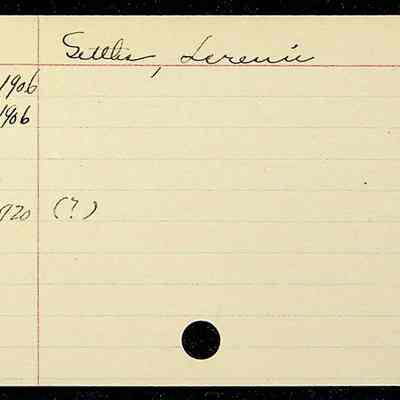 Settles, Lorenie
1906
1906
920 (?)